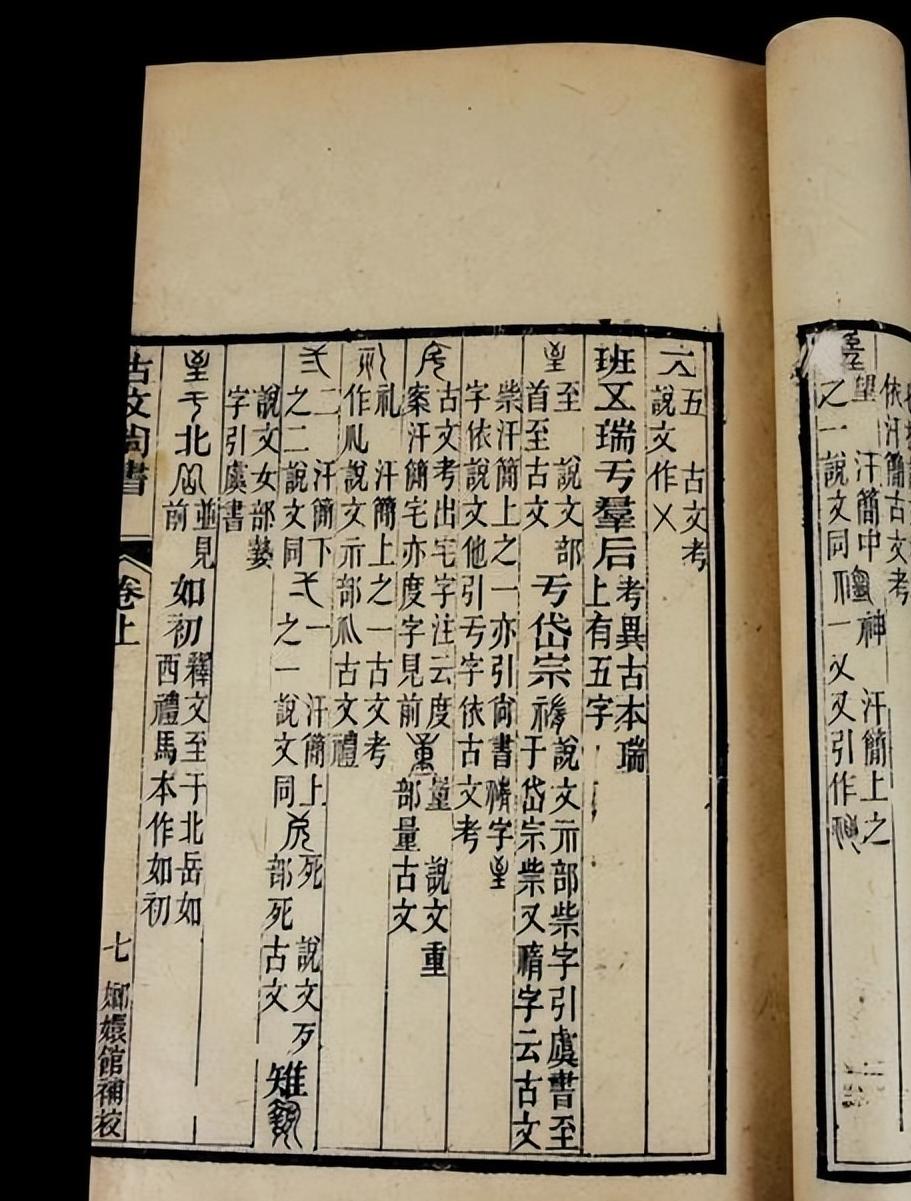 依汗簡古文考
望 汗簡中 神 汗簡上之
之一說文同 一 又又引作
五 古文考
說文作㐅
班𠄡瑞亏羣后
考異古本瑞
上有五字
至 說文部
首至古文
亏岱宗
說文示部祡字引虞書至
于岱宗祡又字云古文
祡汗簡上之一亦引尙書字
字依說文他引亏字依古文考
古文考出宅字注云度
案汗簡宅亦度字見前
量 說文重
部量古文
礼 汗簡上之一古文考
作說文示部古文禮
弍
二 汗簡下
之二說文同
弌
一 汗簡上
之一說文同
死 說文歺
部死古文
雉
說文女部
字引虞書
亏北
並見
前
如初
釋文至于北岳如
西禮馬本作如初
古文尚書
卷上
七
嫏嬛館補校